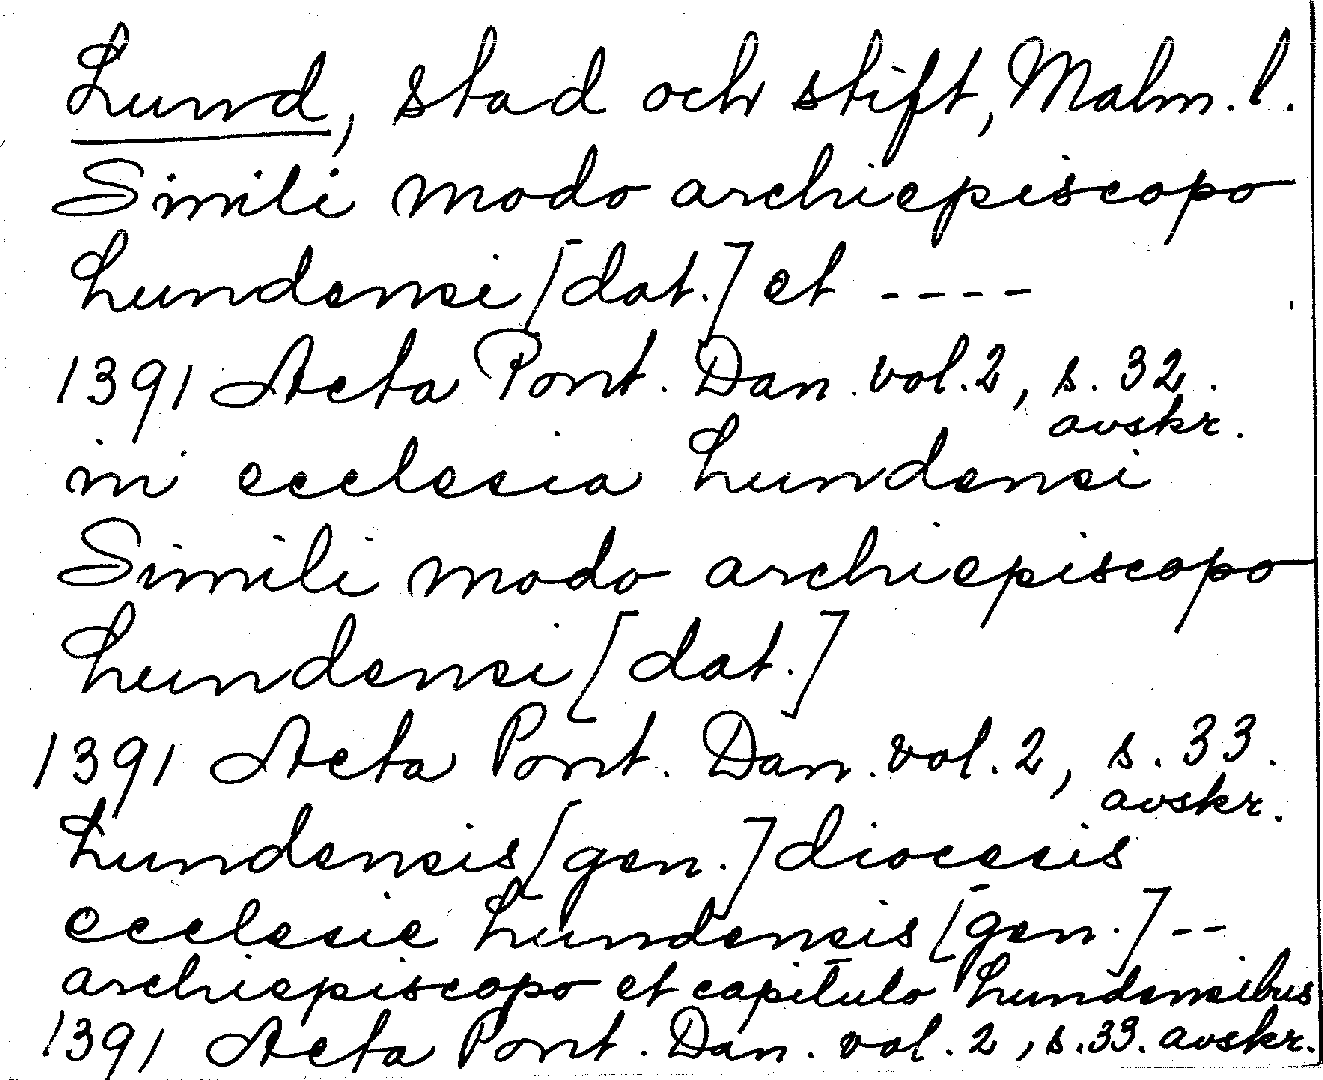 Lund, stad och stift, Malm. l.
Simili modo archiepiscopo
Lundensi [dat.] et ----
1391 Acta Pont. Dan. vol. 2, s. 32.
avskr.
in ecclesia Lundensi
Simili modo archiepiscopo
Lundensi [dat.]
1391 Acta Pont. Dan. vol. 2, s. 33.
avskr.
Lundensis [gen.] diocesis
ecclesie Lundensis [gen.] --
archiepiscopo et capitulo Lundensibus
1391 Acta Pont. Dan. vol. 2, s. 33. avskr.